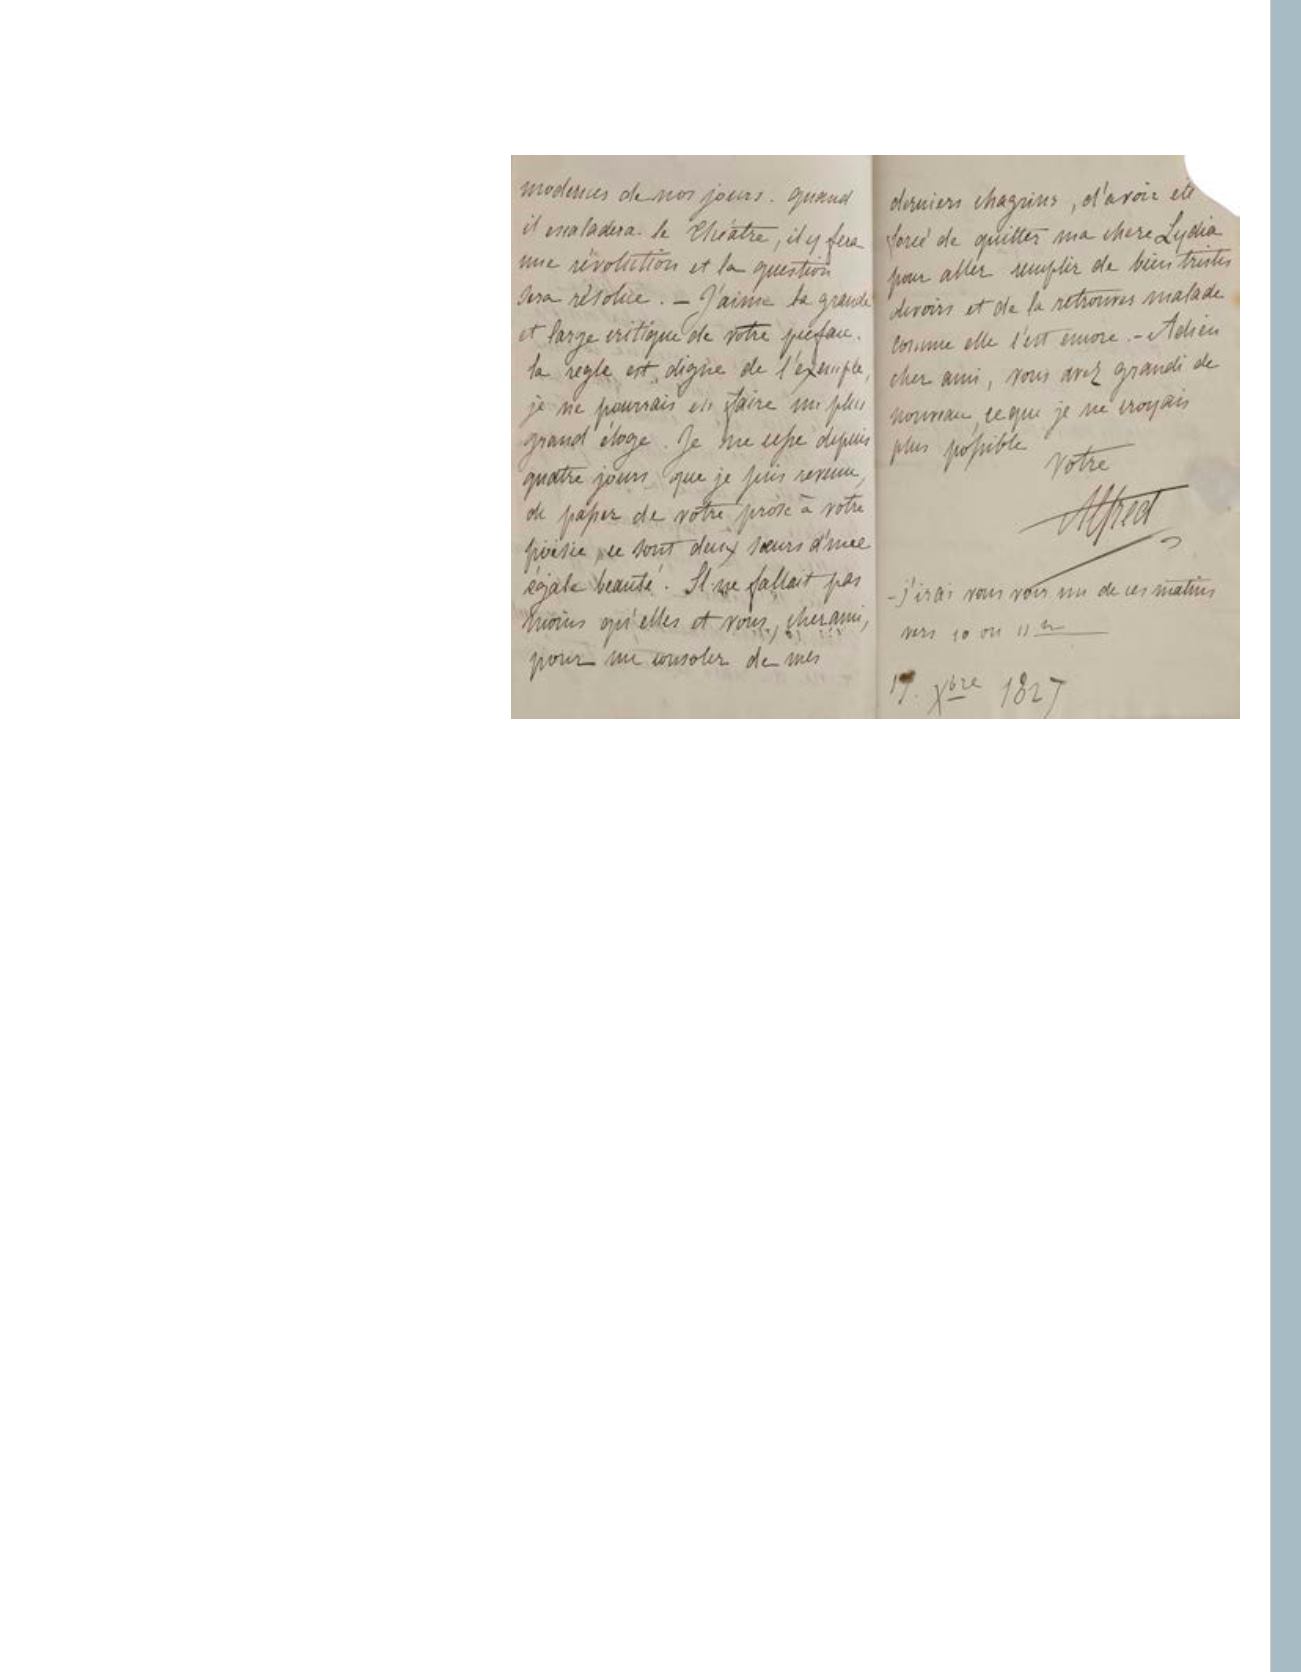 modernes de nos jours. quand
il escaladera le théâtre, il y fera
une révolution et la question
sera résolue. – J'aime la grande
et large critique de votre préface.
la règle est digne de l'exemple,
je ne pourrais en faire un plus
grand éloge. Je ne cesse depuis
quatre jours que je suis revenu,
de passer de votre prose à votre
poésie, ce sont deux sœurs d'une
égale beauté. Il ne fallait pas
moins qu'elles et vous, cher ami,
pour me consoler de mes
derniers chagrins, d'avoir été
forcé de quitter ma chere Lydia
pour aller remplir de bien tristes
devoirs et de la retrouver malade
comme elle l'est encore. – Adieu
cher ami, vous avez grandi de
nouveau, ce que je ne croyais
plus possible
Votre
Alfred
– j'irai vous voir un de ces matins
vers 10 ou 11 h
Xbre 1827